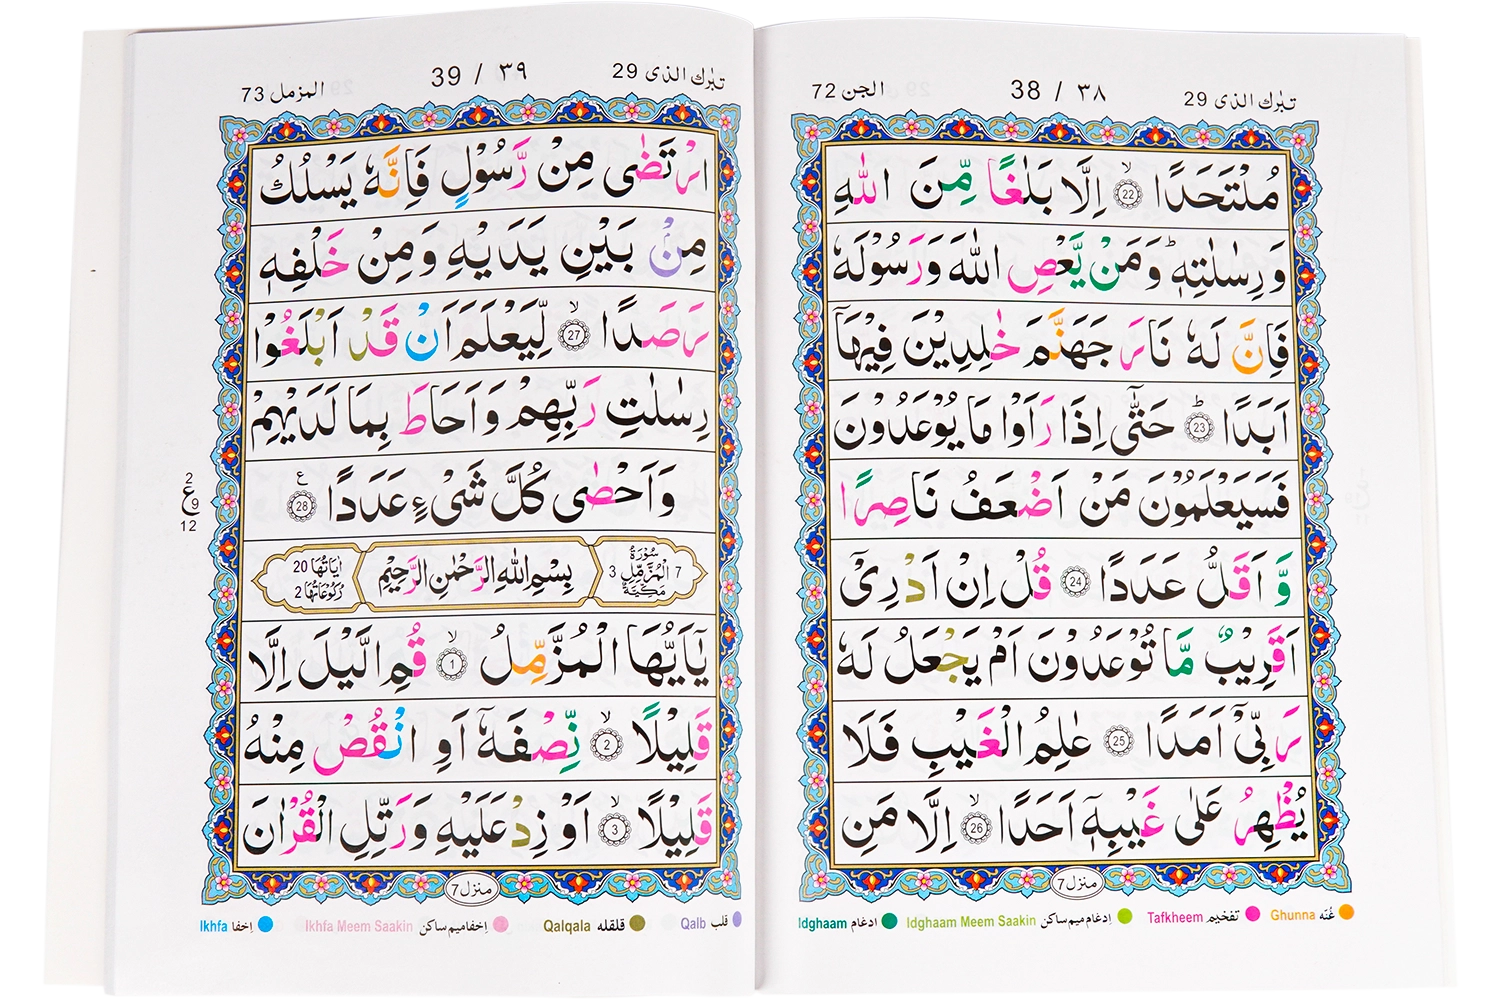 تبٰرك الذی 29
38 / ٣٨
الجن 72
مُلْتَحَدًا ۙ 22 اِلَّا بَلٰغًا مِّنَ اللّٰهِ
وَ رِسٰلٰتِهٖ ؕ وَ مَنْ یَّعْصِ اللّٰهَ وَ رَسُوْلَهٗ
فَاِنَّ لَهٗ نَارَ جَهَنَّمَ خٰلِدِیْنَ فِیْهَاۤ
اَبَدًا ؕ 23 حَتّٰۤی اِذَا رَاَوْا مَا یُوْعَدُوْنَ
فَسَیَعْلَمُوْنَ مَنْ اَضْعَفُ نَاصِرًا
وَّ اَقَلُّ عَدَدًا 24 قُلْ اِنْ اَدْرِیْۤ
اَقَرِیْبٌ مَّا تُوْعَدُوْنَ اَمْ یَجْعَلُ لَهٗ
رَبِّیْۤ اَمَدًا 25 عٰلِمُ الْغَیْبِ فَلَا
یُظْهِرُ عَلٰی غَیْبِهٖۤ اَحَدًا ۙ 26 اِلَّا مَنِ
منزل 7
Ghunna غُنّه Tafkheem تفخیم Idghaam Meem Saakin اِدغام میم ساکن Idghaam ادغام
تبٰرك الذی 29
39 / ٣٩
المزمل 73
ارْتَضٰی مِنْ رَّسُوْلٍ فَاِنَّهٗ یَسْلُكُ
مِنْۢ بَیْنِ یَدَیْهِ وَ مِنْ خَلْفِهٖ
رَصَدًا ۙ 27 لِّیَعْلَمَ اَنْ قَدْ اَبْلَغُوْا
رِسٰلٰتِ رَبِّهِمْ وَ اَحَاطَ بِمَا لَدَیْهِمْ
وَ اَحْصٰی كُلَّ شَیْءٍ عَدَدًا 28 ع
2
ع 9
12
7 سُوْرَةُ الْمُزَّمِّلِ مَكِّیَّةٌ 3
بِسْمِ اللّٰهِ الرَّحْمٰنِ الرَّحِیْمِ
اٰیَاتُهَا 20
رُكُوْعَاتُهَا 2
یٰۤاَیُّهَا الْمُزَّمِّلُ ۙ 1 قُمِ الَّیْلَ اِلَّا
قَلِیْلًا ۙ 2 نِّصْفَهٗۤ اَوِ انْقُصْ مِنْهُ
قَلِیْلًا ۙ 3 اَوْ زِدْ عَلَیْهِ وَ رَتِّلِ الْقُرْاٰنَ
منزل 7
قلب Qalb قلقله Qalqala اِخفا میم ساکن Ikhfa Meem Saakin اِخفا Ikhfa